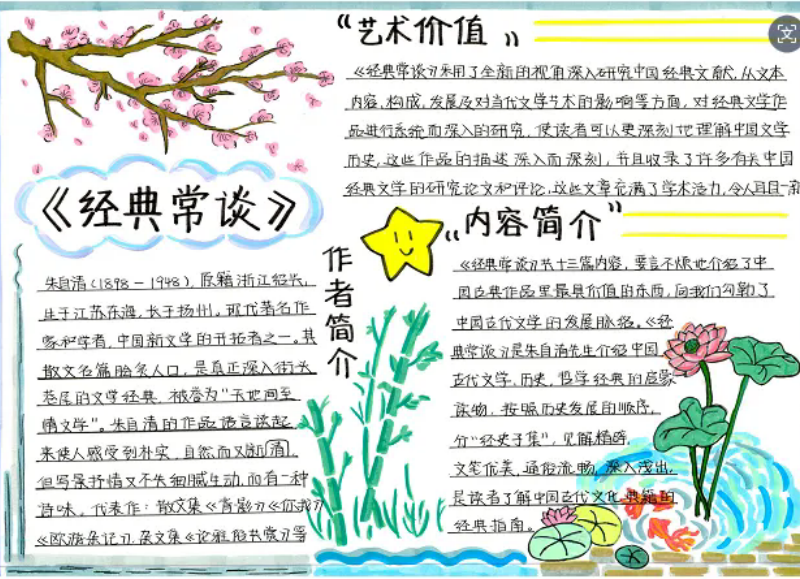 “艺术价值”
《经典常谈》采用了全新的视角深入研究中国经典文献，从文本
内容，构成，发展及对当代文学艺术的影响等方面，对经典文学作
品进行系统而深入的研究，使读者可以更深刻地理解中国文学
历史，这些作品的描述深入而深刻，并且收录了许多有关中国
经典文学的研究论文和评论，这些文章充满了学术活力，令人耳目一新
《经典常谈》
作者简介
朱自清（1898－1948），原籍浙江绍兴，
生于江苏东海，长于扬州。现代著名作
家和学者，中国新文学的开拓者之一。其
散文名篇脍炙人口，是真正深入街头
巷尾的文学经典，被誉为“天地间至
情文学”。朱自清的作品语言读起
来使人感受到朴实，自然而又清
但写景抒情又不失细腻生动，而有一种
诗味。代表作：散文集《背影》《你我》
《欧游杂记》，杂文集《论雅俗共赏》等
“内容简介”
《经典常谈》共十三篇内容，要言不烦地介绍了中
国古典作品里最具价值的东西，向我们勾勒了
中国古代文学的发展脉络。《经
典常谈》是朱自清先生介绍中国
古代文学，历史，哲学经典的启蒙
读物，按照历史发展的顺序，
分“经史子集”，见解精辟，
文笔优美，通俗流畅，深入浅出，
是读者了解中国古代文化典籍的
经典指南。